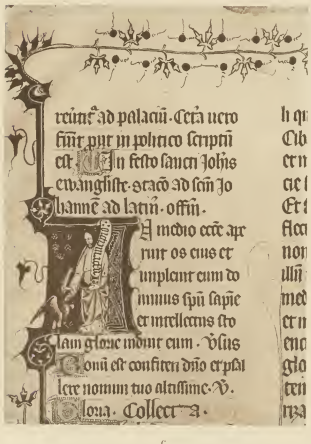 reūtit᷑ ad palaciū. Cetã uero
fiūt put in politico scriptū
est. In festo sancti Johis
ewangliste. stacō ad scm̄ Jo
hannē ad latin̄. offm̄.
In medio eccē ape
runt os eius et
impleuit eum do
minus spū sapiē
et intellectus sto
lam glorie induit eum. Vsus
Bonū est confiteri dn̄o et psal
lere nomini tuo altissime. V.
Gloria. Collecta.
li qu
Cib
et in
cie s
Et a
flec
non
illū
med
et in
enc
glo
ten
riza